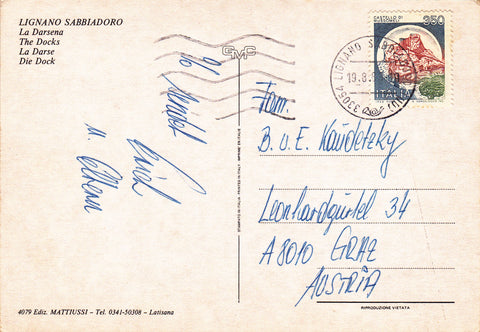 LIGNANO SABBIADORO
La Darsena
The Docks
La Darse
Die Dock
GMC
CASTELLO DI
350
ITALIA
33054 LIGNANO SABB
19.8.
Fam.
B. u. E. Kaudetzky
Leonhardgürtel 34
A 8010 GRAZ
AUSTRIA
u. Eltern
STAMPATO IN ITALIA PRINTED IN ITALY IMPRIMÉ EN ITALIE
4079 Ediz. MATTIUSSI - Tel. 0341-50308 - Latisana
RIPRODUZIONE VIETATA